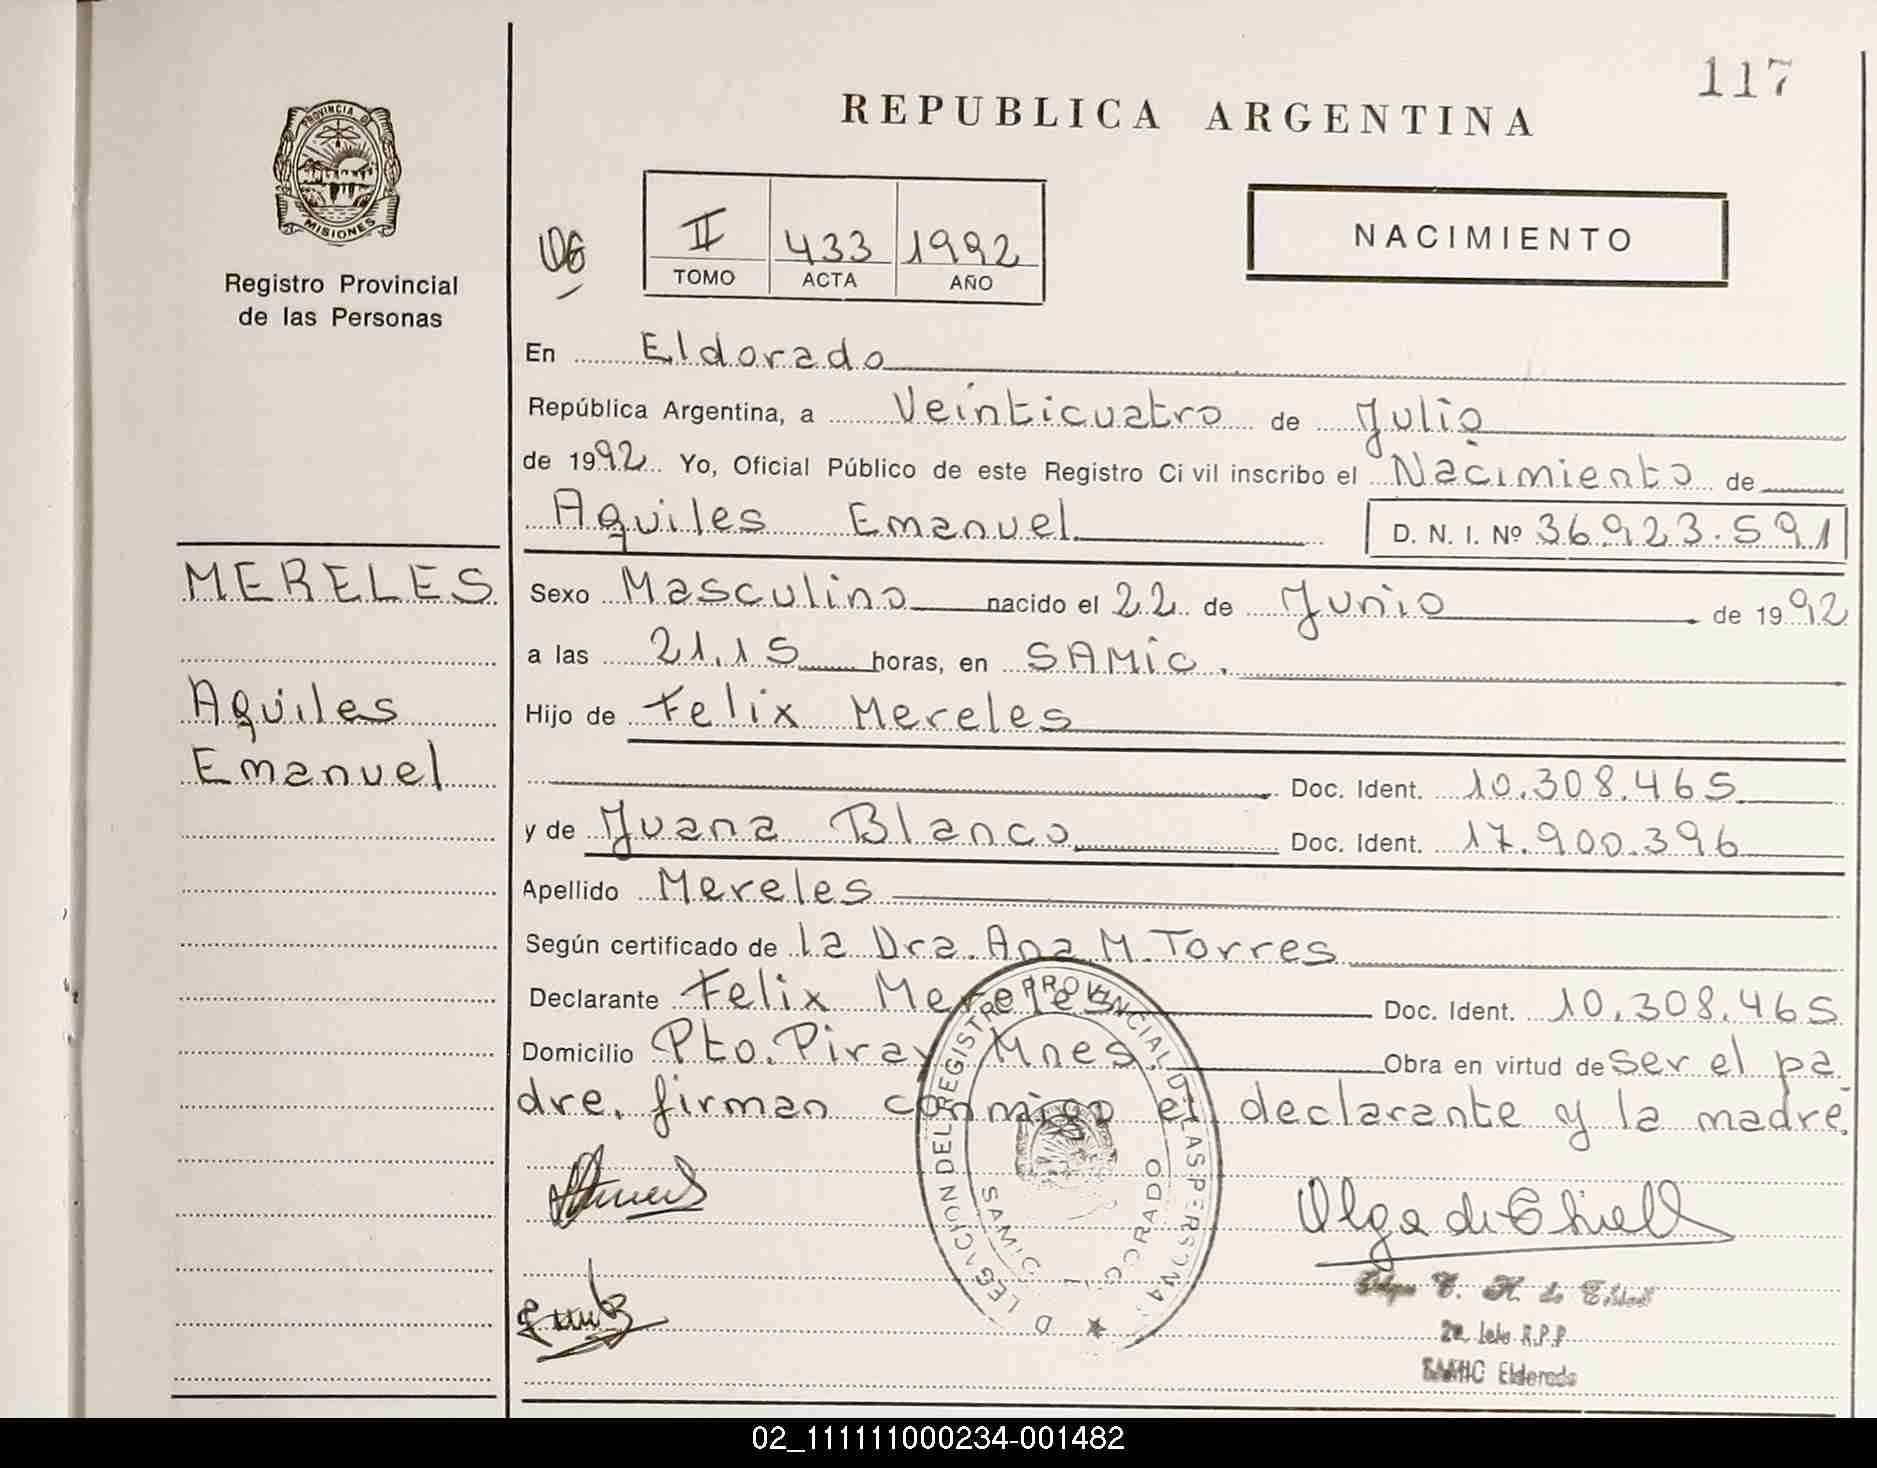 117
REPUBLICA ARGENTINA
PROVINCIA D
MISIONES
Registro Provincial
de las Personas
II 433 1992
TOMO ACTA AÑO
NACIMIENTO
En Eldorado
República Argentina, a Veinticuatro de Julio
de 1992 Yo, Oficial Público de este Registro Civil inscribo el Nacimiento de
Aquiles Emanuel
D. N. I. Nº 36.923.591
MERELES
Aquiles
Emanuel
Sexo Masculino nacido el 22 de Junio de 1992
a las 21.15 horas, en SAMIC.
Hijo de Felix Mereles
Doc. Ident. 10.308.465
y de Juana Blanco Doc. Ident. 17.900.396
Apellido Mereles
Según certificado de la Dra. Ana M. Torres
Declarante Felix Mereles Doc. Ident. 10.308.465
Domicilio Pto. Piray Mnes. Obra en virtud de ser el pa-
dre. firman conmigo el declarante y la madre.
D LEGACION DEL REGISTRO PROVINCIAL D LAS PERSONA
SAMIC
DORADO
Olga de
R.P.P
SAMIC Eldorado
02_111111000234-001482